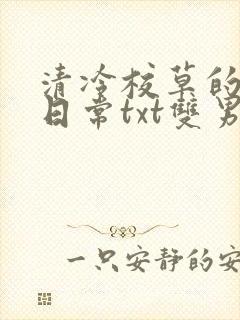 清冷校草的
日常txt雙男
一只安静的安